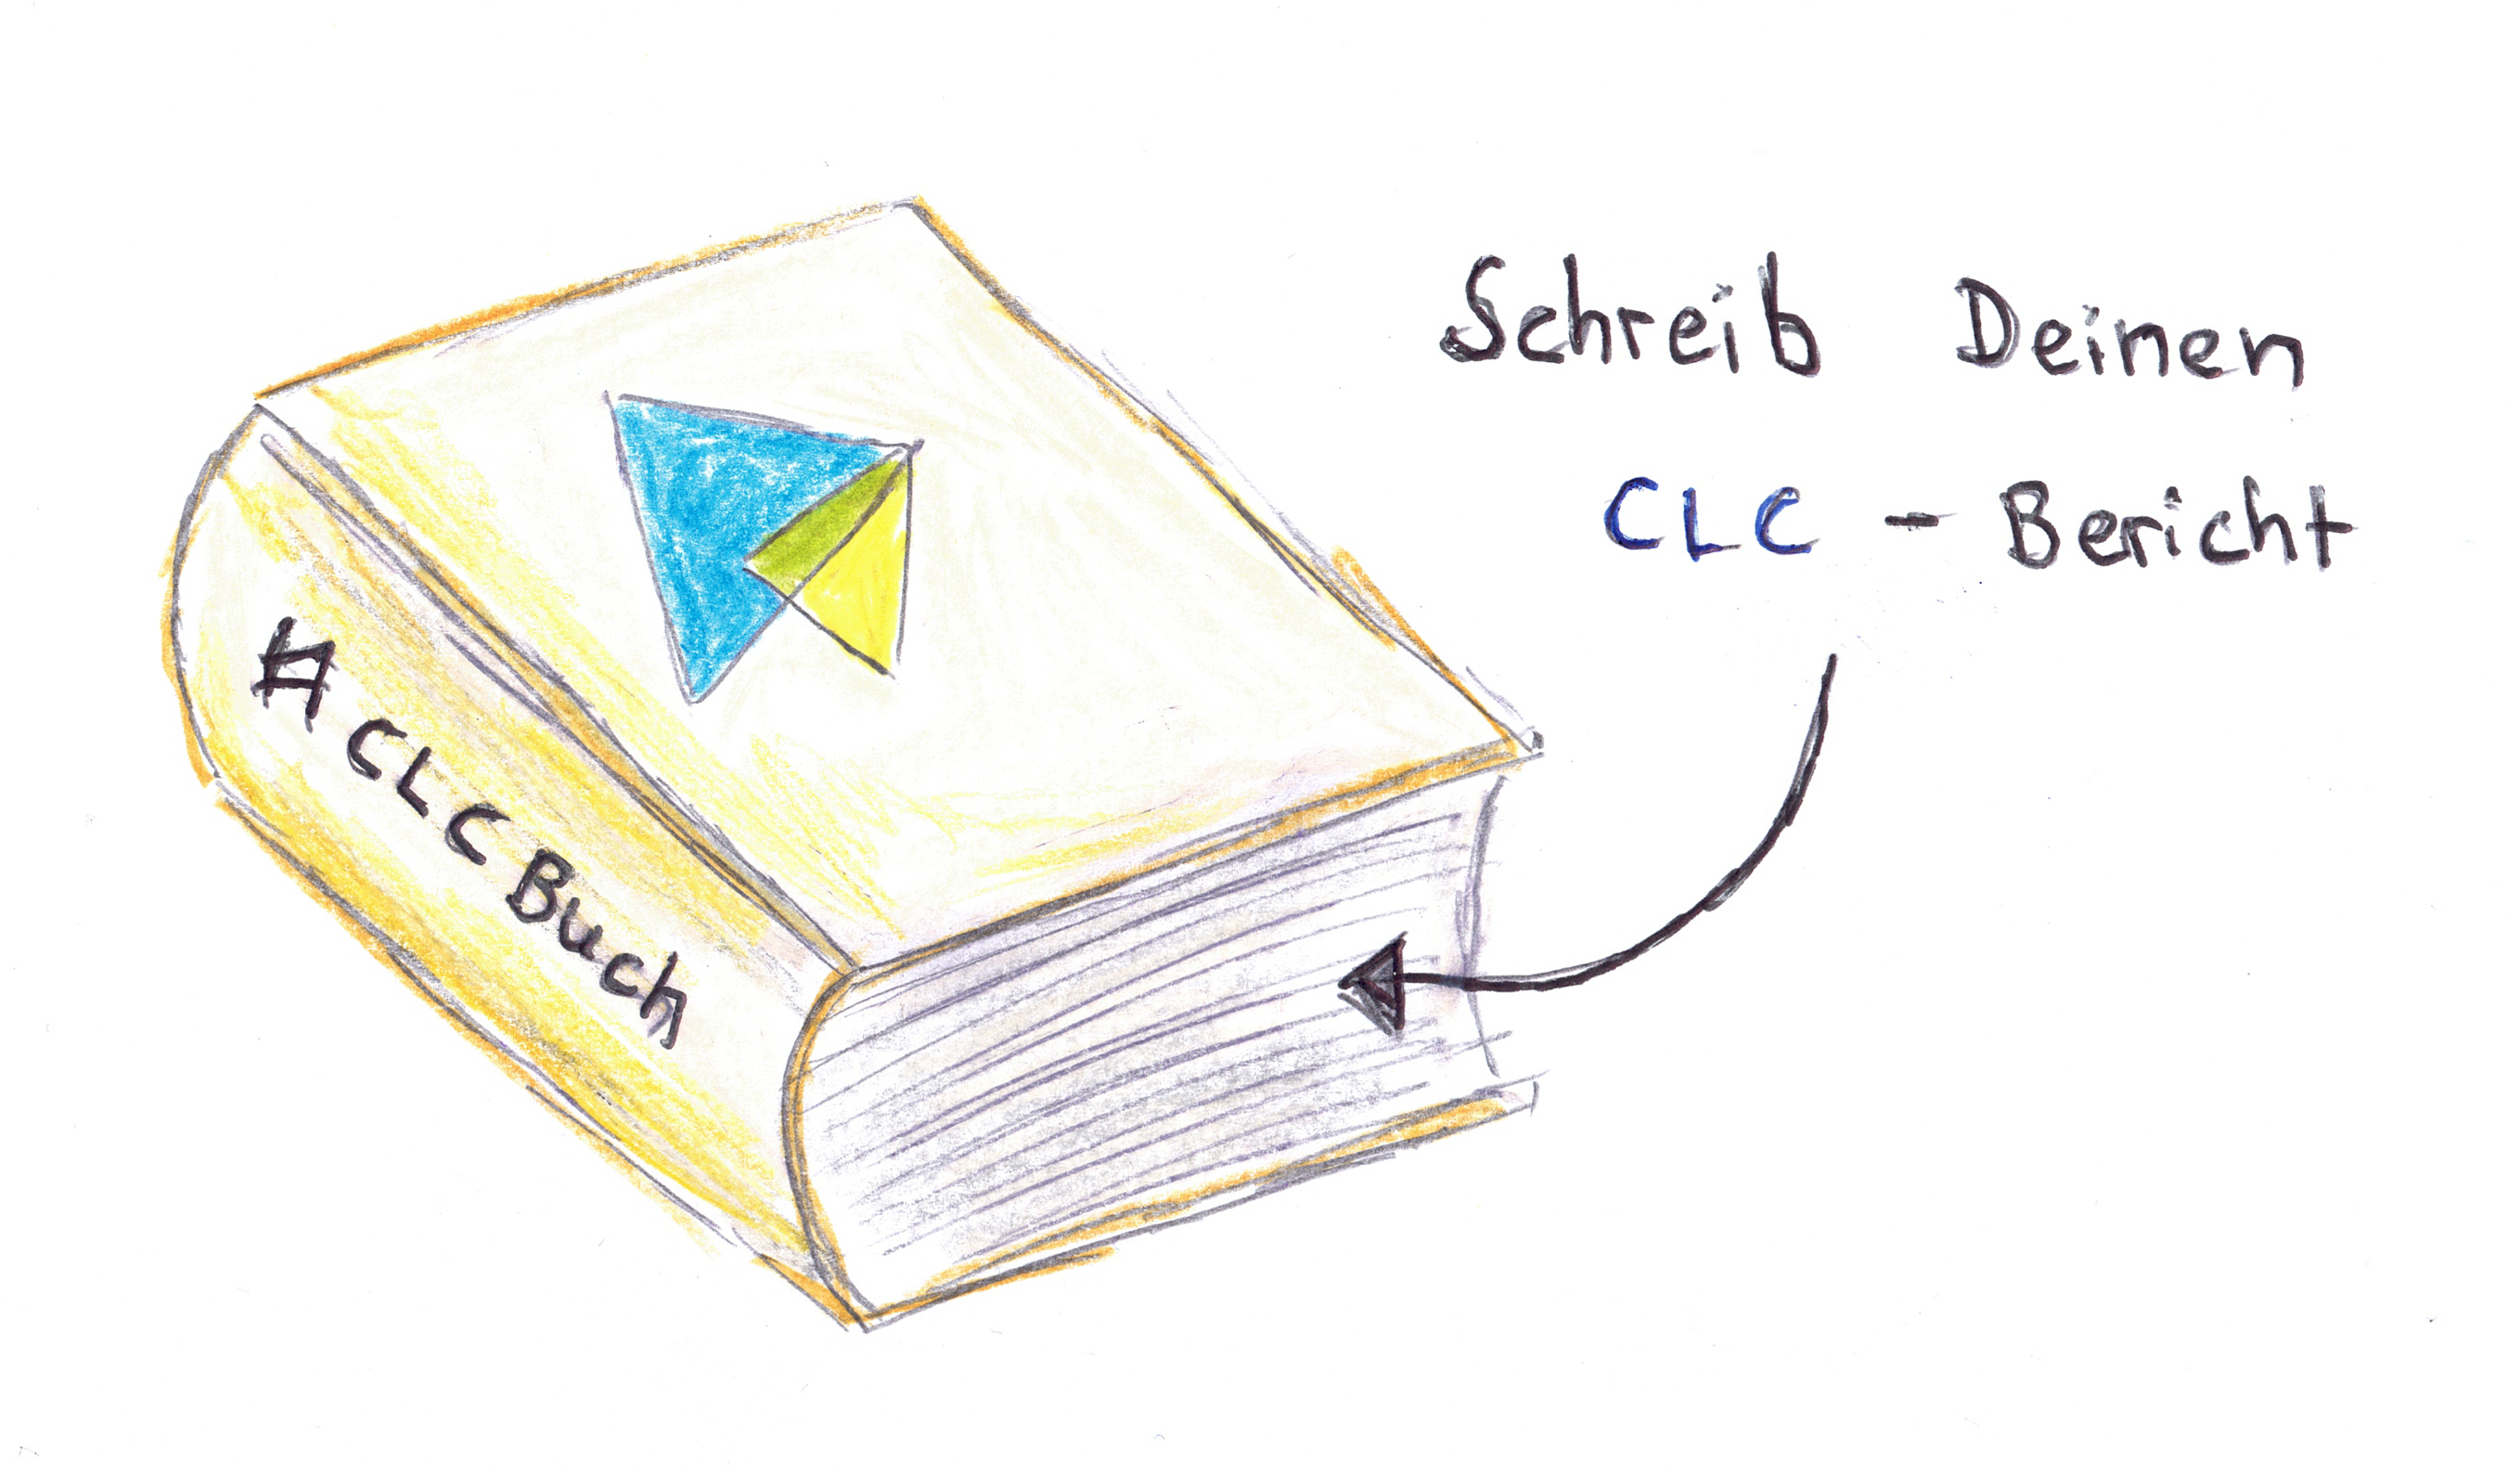 Schreib Deinen
CLC - Bericht
# CLC Buch